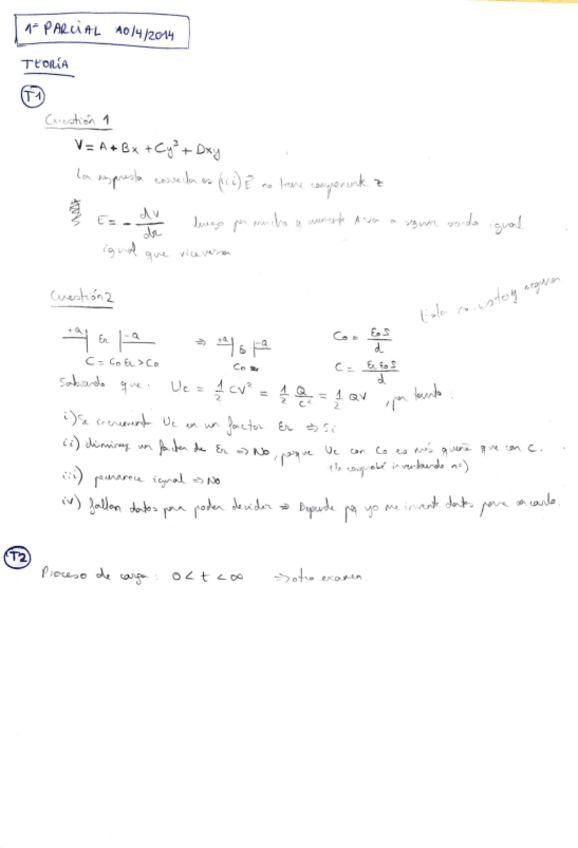 1º PARCIAL 10/4/2014
TEORÍA
T1
Cuestión 1
V = A + Bx + Cy² + Dxy
La respuesta correcta es (iii) E⃗ no tiene componente z
E = - dV/dr luego por mucho q aumente A va a seguir siendo igual
igual que viceversa
Cuestión 2
(no estoy seguro
+Q | Er | -Q ⇒ +Q | | -Q C₀ = E₀S/d
C = C₀Er > C₀ C₀ C = ErE₀S/d
Sabiendo que: Uc = 1/2 CV² = 1/2 Q/C² = 1/2 QV , por tanto:
i) Se incrementa Uc en un factor Er ⇒ Si
ii) disminuye un factor de Er ⇒ No, porque Uc con C₀ es más que con C.
(lo comprobé inventando nº)
iii) permanece igual ⇒ No
iv) faltan datos para poder decidir ⇒ Depende pq yo me inventé datos para sacarlo.
T2
Proceso de carga: 0 < t < ∞ ⇒ otro examen